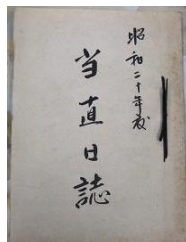 昭和二十年度
当直日誌